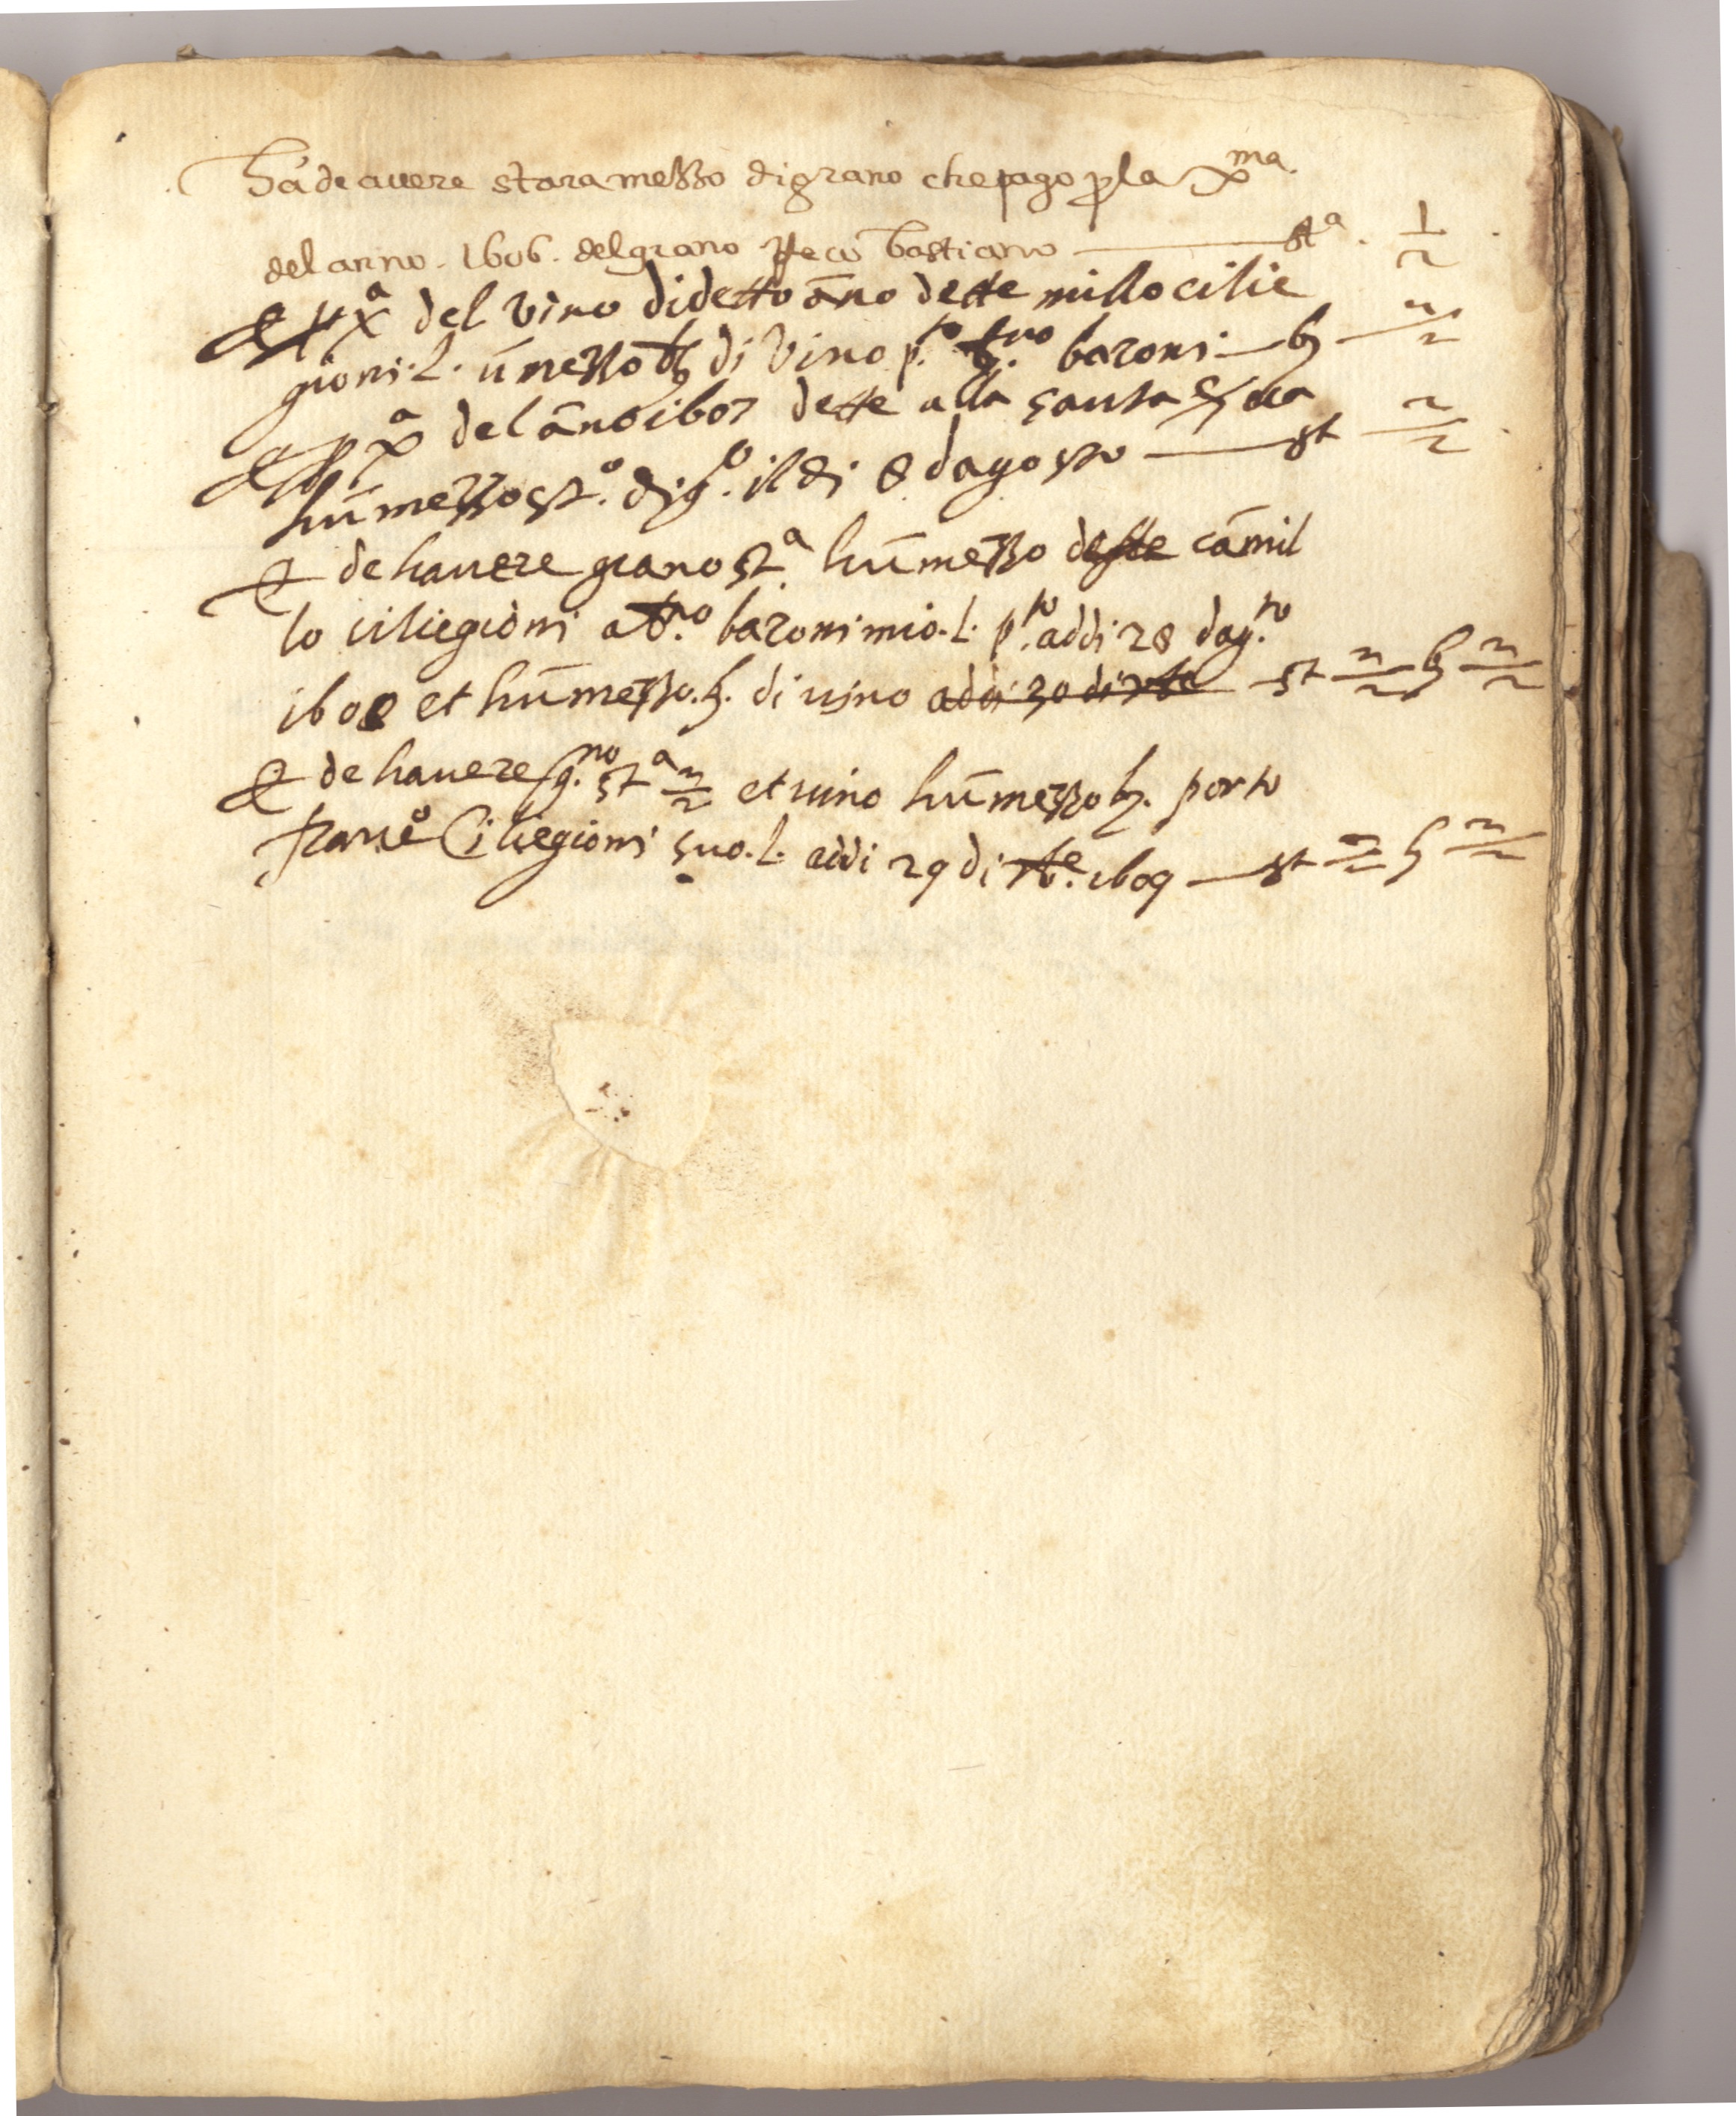 Ha de auere stara mezzo di grano che pago p la Xma.
del anno. 1606. del grano reco bastiano st.a 1/2
& p Xa del vino di detto āno dette millo cilie
gioni. L. ū mezzo b di vino p.to baroni b 1/2
& p Xa del āno 1607 dette alla
hū mezzo st.o di g.o il di 8 dagosto st 1/2
& de hauere grano st.a hū mezzo dette cāmil
lo ciliegioni a baroni mio. L. p.to addi 28 dag.to
1608 et hū mezzo. b. di uino addi 30 di st 1/2 b 1/2
& de hauere g.no st.a 1/2 et uino hū mezzo b. porto
franc.o Ciliegioni suo. L. addi 29 di 1609 st 1/2 b 1/2